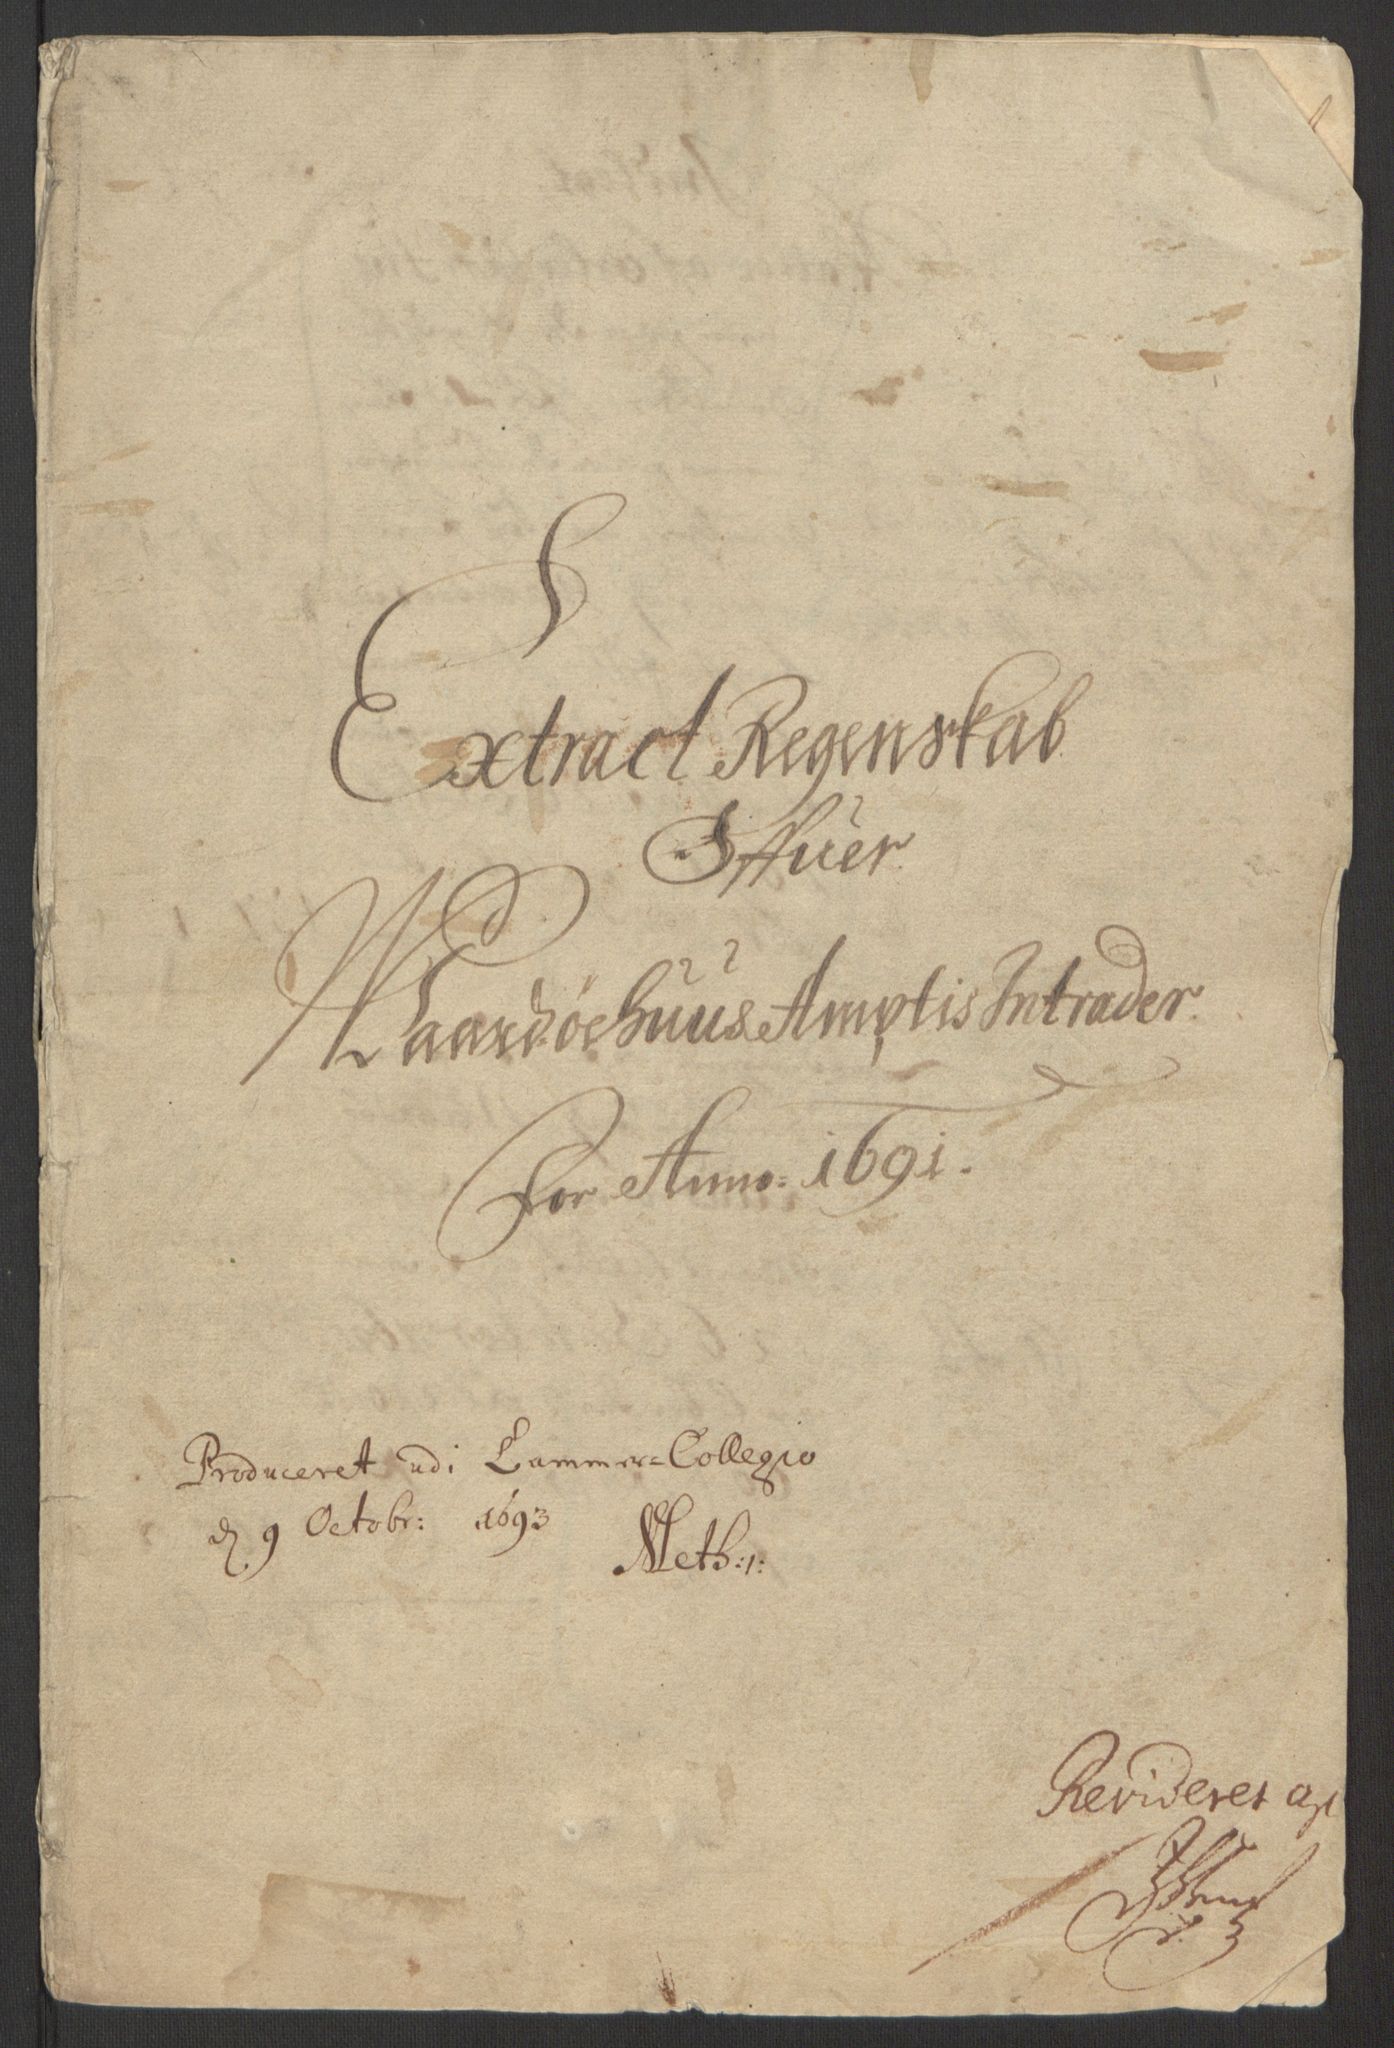 Extract Regenskab
Offuer
Waardøehuus Amptis Intrader
For Anno: 1691.
Produceret udi Cammer=Collegio
d. 9 Octobr: 1693
Meth:
Revideret af